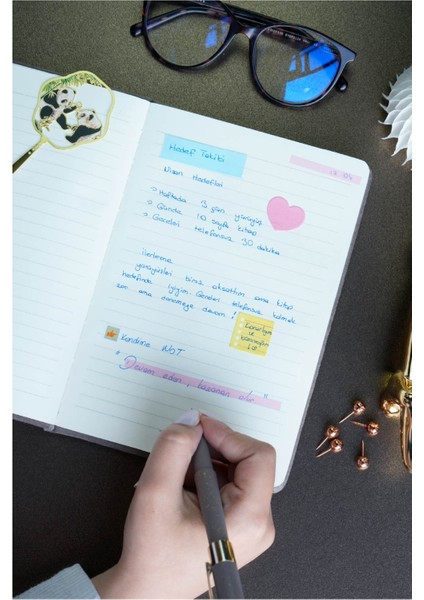 Hedef Takibi
Nisan Hedefleri
→ Haftada 3 gün yürüyüş
→ Günde 10 sayfa kitap
→ Geceleri telefonsuz 30 dakika
ilerleme
yürüyüşleri biraz aksattım ama kitap
hedefinde iyiyim. Geceleri telefonsuz kalmak
zor ama denemeye devam!
Kararlıyım
ve
Kendime NOT
" Devam eden, kazanan olur "